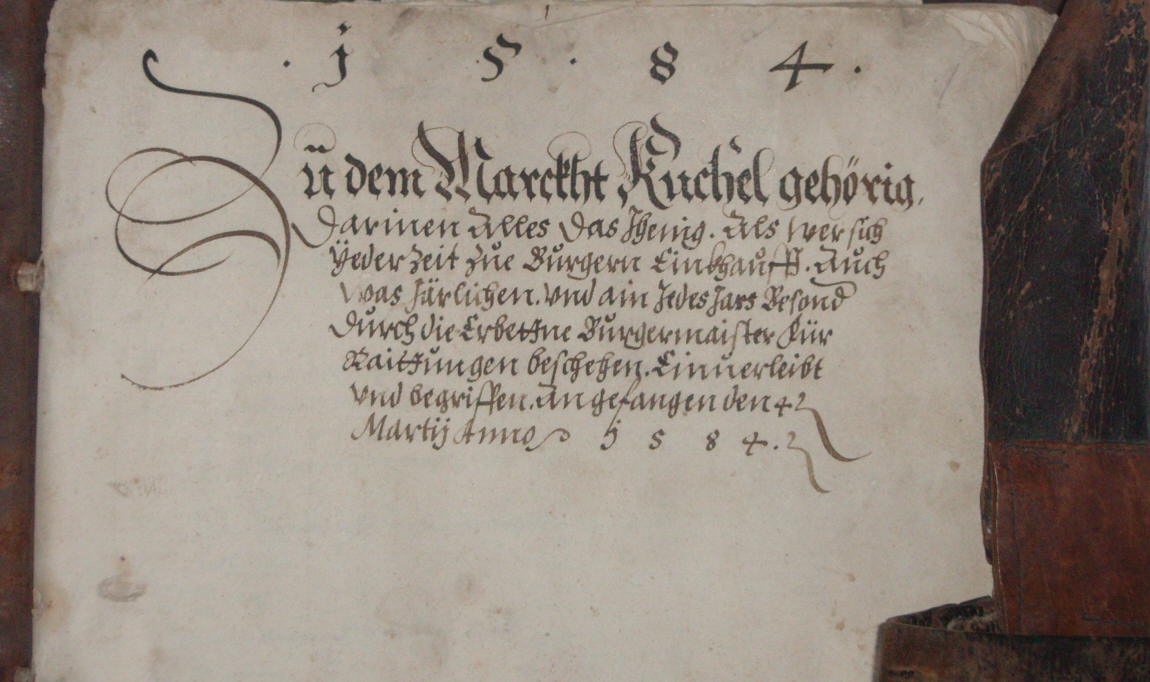 · 1 5 · 8 4 ·
Zů dem Marckht Kuchel gehörig.
Darinen Alles Das Jhenig. Als wer sich
Yeder Zeit Zue Burgern Einkhaufft. Auch
was Järlichen. vnd ain Jedes Jars Besond
Durch die Erbettne Burgermaister Für
Raittungen beschehen. Einuerleibt
vnd begriffen. Angefangen den 4
Martij Anno 1 5 8 4 .